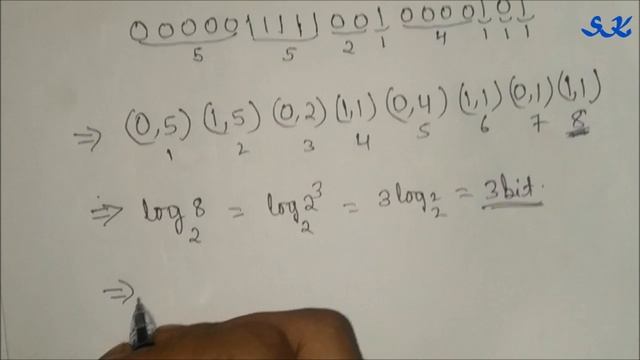 0000011111001 0000101 SK
5 5 2 1 4 1 1 1
⇒ (0,5) (1,5) (0,2) (1,1) (0,4) (1,1) (0,1) (1,1)
1 2 3 4 5 6 7 8
⇒ log₂8 = log₂2³ = 3log₂2 = 3bit.
⇒